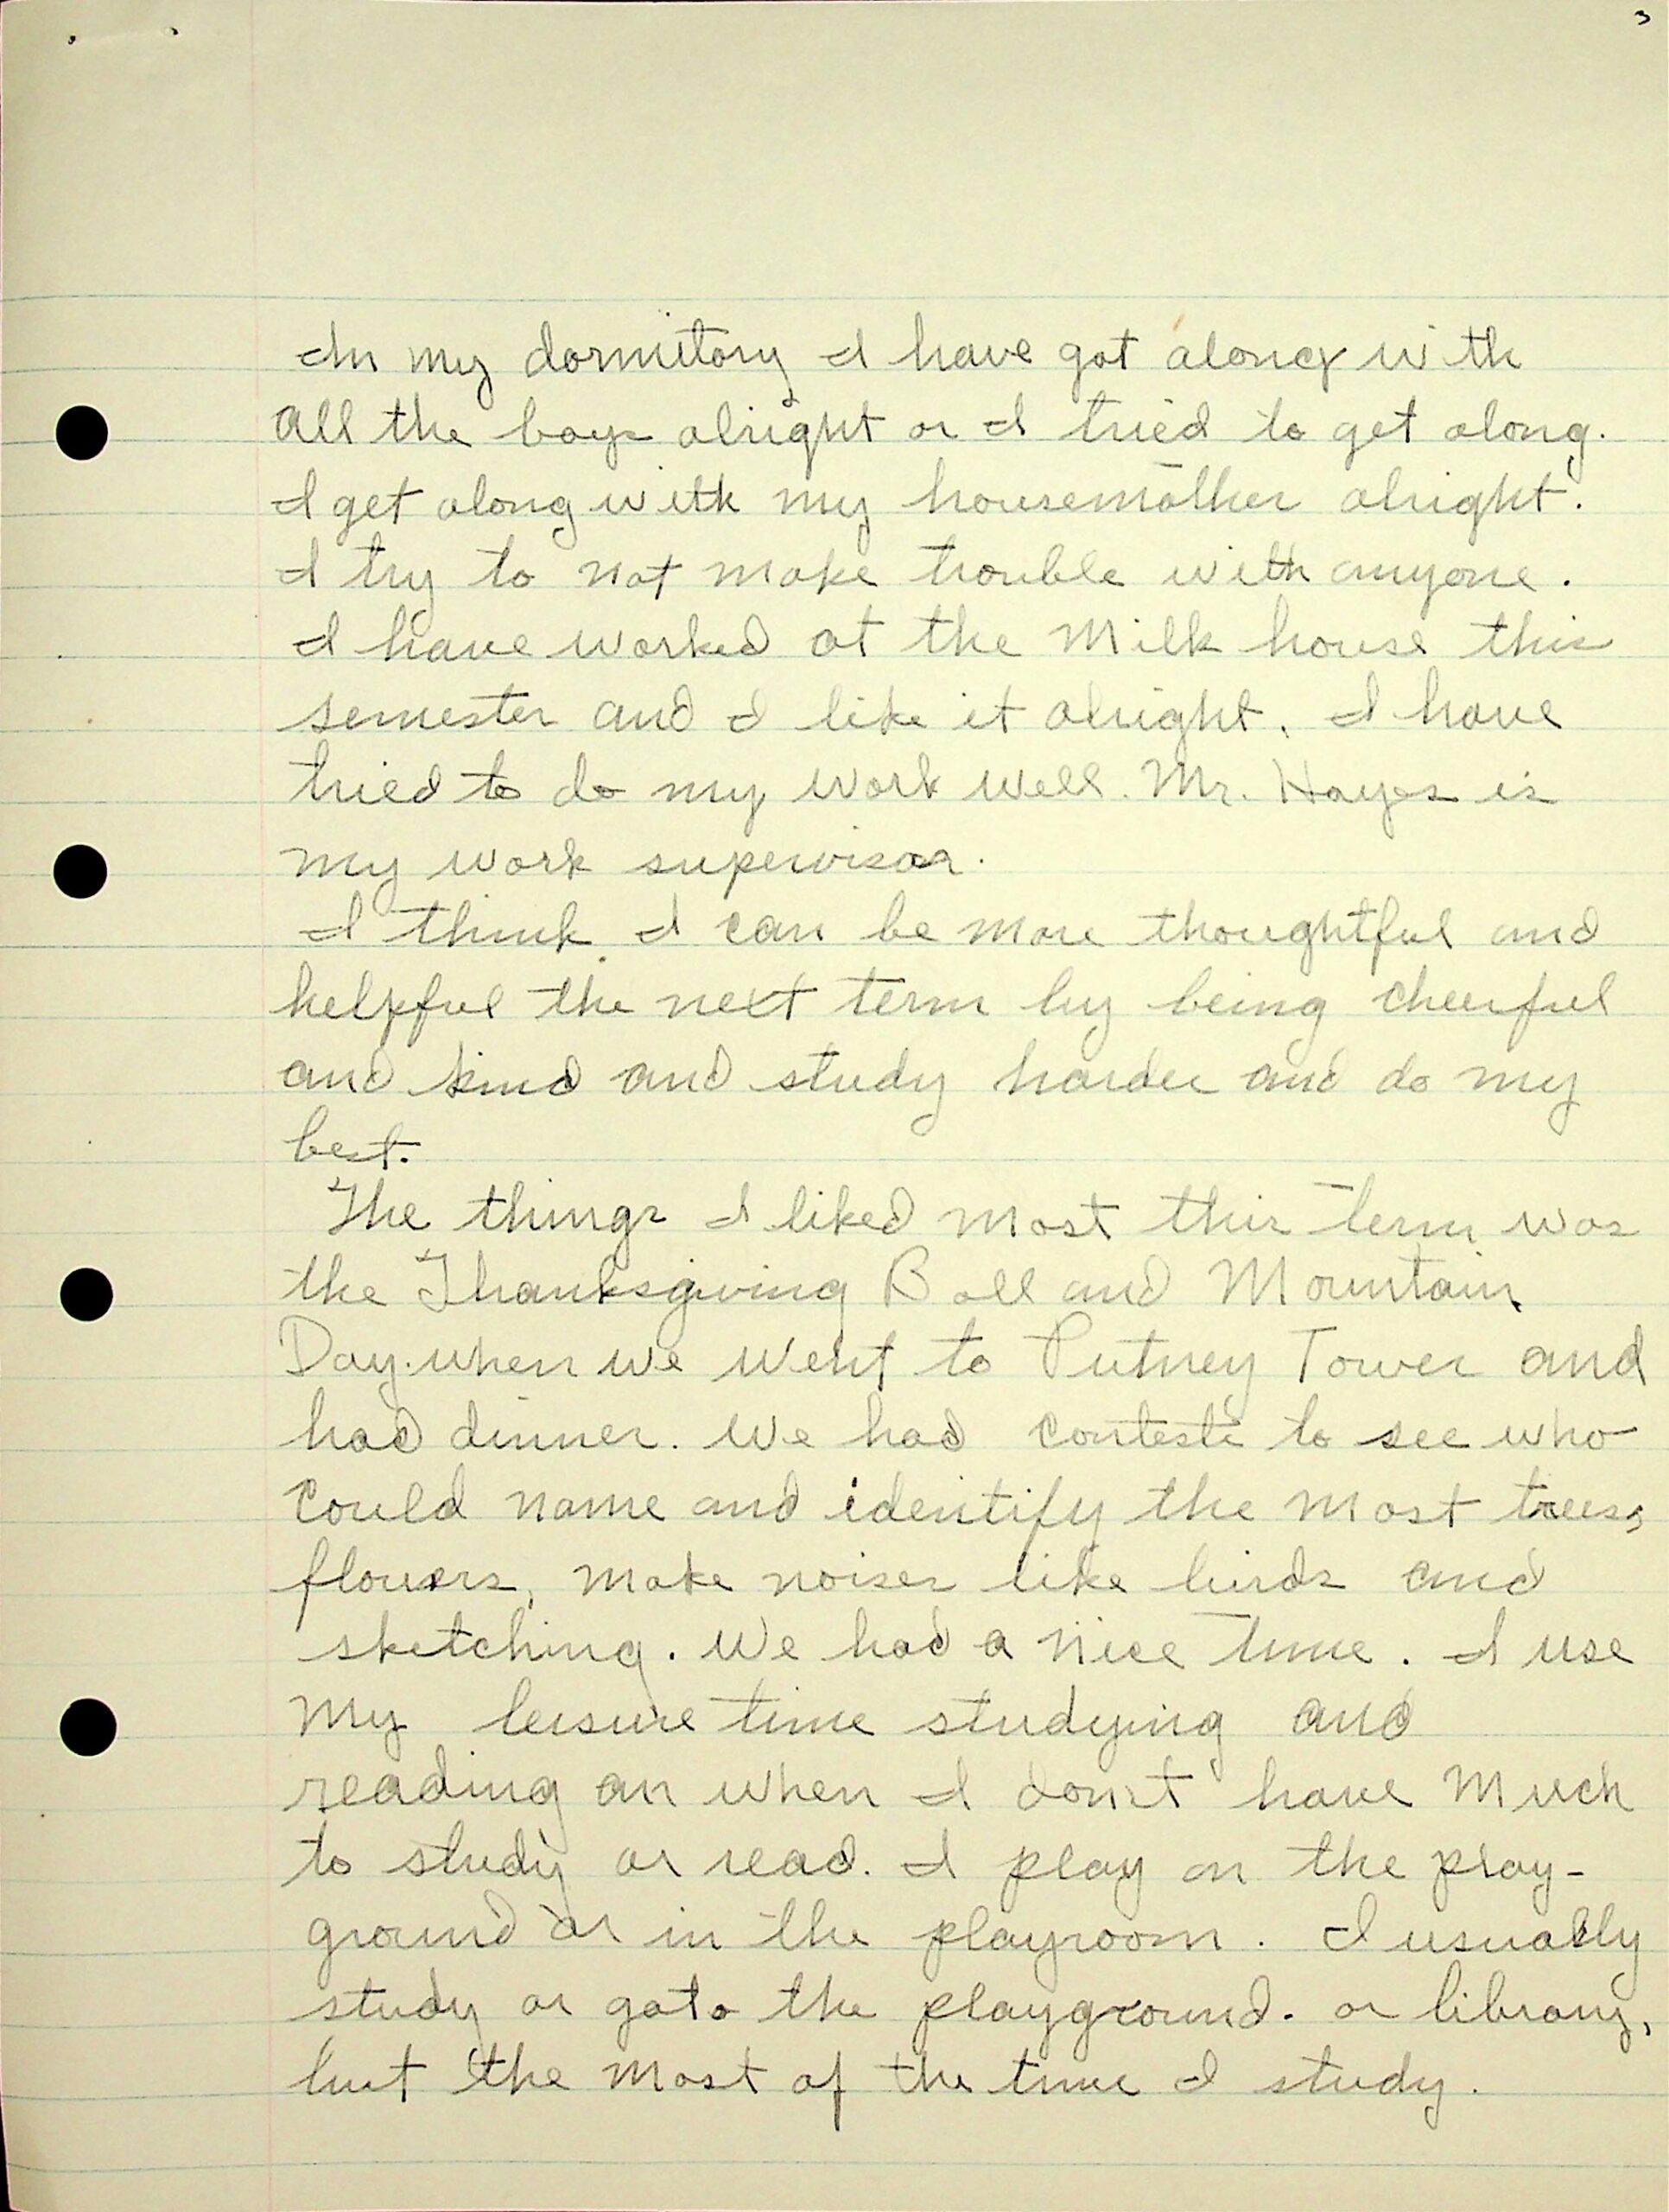 3
In my dormitory I have got along with
all the boys alright or I tried to get along.
I get along with my housemother alright.
I try to not make trouble with anyone.
I have worked at the Milk house this
semester and I like it alright. I have
tried to do my work well. Mr. Hayes is
my work supervisor.
I think I can be more thoughtful and
helpful the next term by being cheerful
and kind and study harder and do my
best.
The things I liked most this term was
the Thanksgiving Ball and Mountain
Day. when we went to Putney Tower and
had dinner. We had contests to see who
could name and identify the most trees,
flowers, make noises like birds and
sketching. We had a nice time. I use
my leisure time studying and
reading an when I don't have much
to study or read. I play on the play-
ground or in the playroom. I usually
study or go to the playground. or library,
but the most of the time I study.